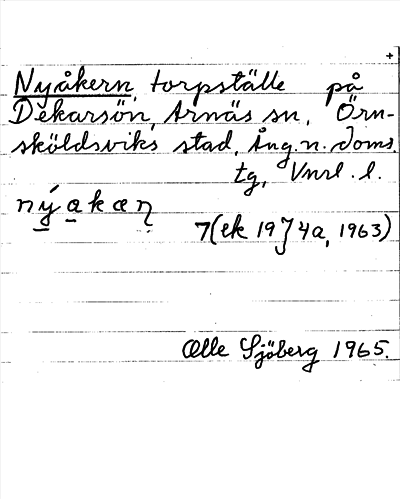 +
Nyåkern, torpställe på
Dekarsön, Arnäs sn, Örn-
sköldsviks stad, Ång. n. doms.
tg, Vnrl. l.
nýakæn̥
7(ek 19J 4a, 1963)
Olle Sjöberg 1965.